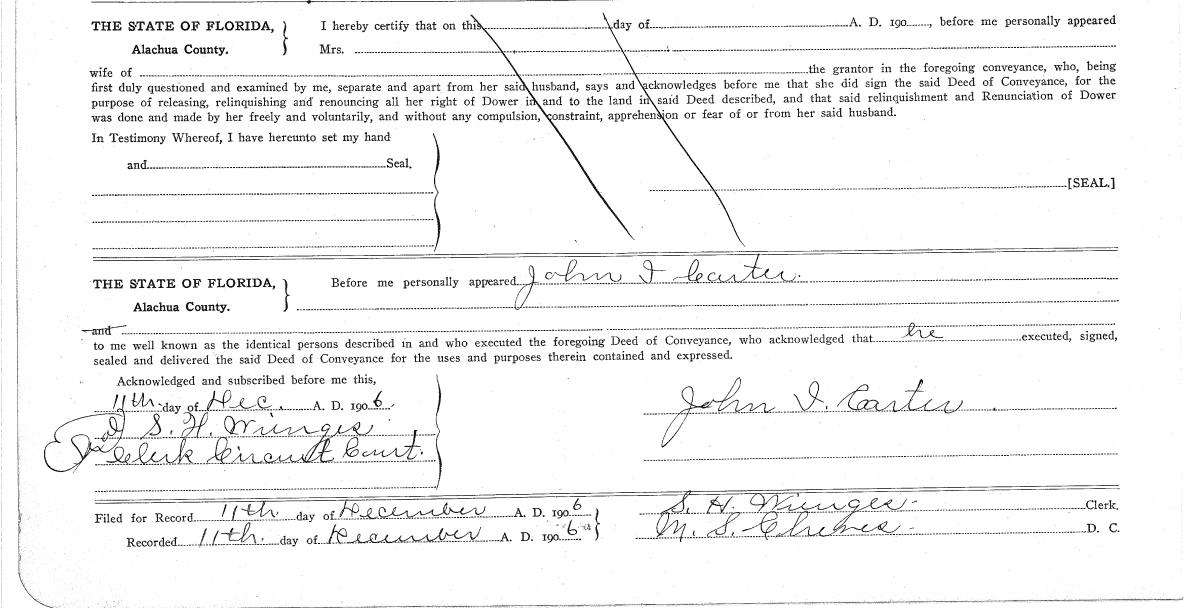 THE STATE OF FLORIDA, I hereby certify that on this day of A. D. 190 , before me personally appeared
Alachua County. Mrs.
wife of the grantor in the foregoing conveyance, who, being
first duly questioned and examined by me, separate and apart from her said husband, says and acknowledges before me that she did sign the said Deed of Conveyance, for the
purpose of releasing, relinquishing and renouncing all her right of Dower in and to the land in said Deed described, and that said relinquishment and Renunciation of Dower
was done and made by her freely and voluntarily, and without any compulsion, constraint, apprehension or fear of or from her said husband.
In Testimony Whereof, I have hereunto set my hand
and Seal.
[SEAL.]
THE STATE OF FLORIDA, Before me personally appeared John I Carter.
Alachua County.
and
to me well known as the identical persons described in and who executed the foregoing Deed of Conveyance, who acknowledged that he executed, signed,
sealed and delivered the said Deed of Conveyance for the uses and purposes therein contained and expressed.
Acknowledged and subscribed before me this,
11th day of Dec. A. D. 1906.
John I. Carter.
S. H. Wienges
Clerk Circuit Court.
Filed for Record 11th day of December A. D. 1906 S. H. Wienges Clerk.
Recorded 11th. day of December A. D. 1906 M. S. Cheves D. C.